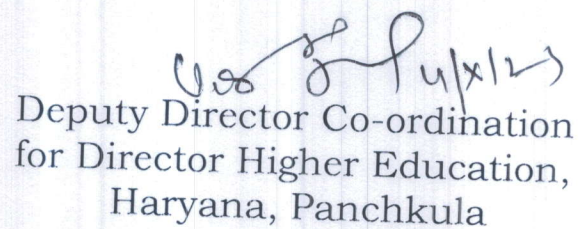 4/X/23
Deputy Director Co-ordination
for Director Higher Education,
Haryana, Panchkula